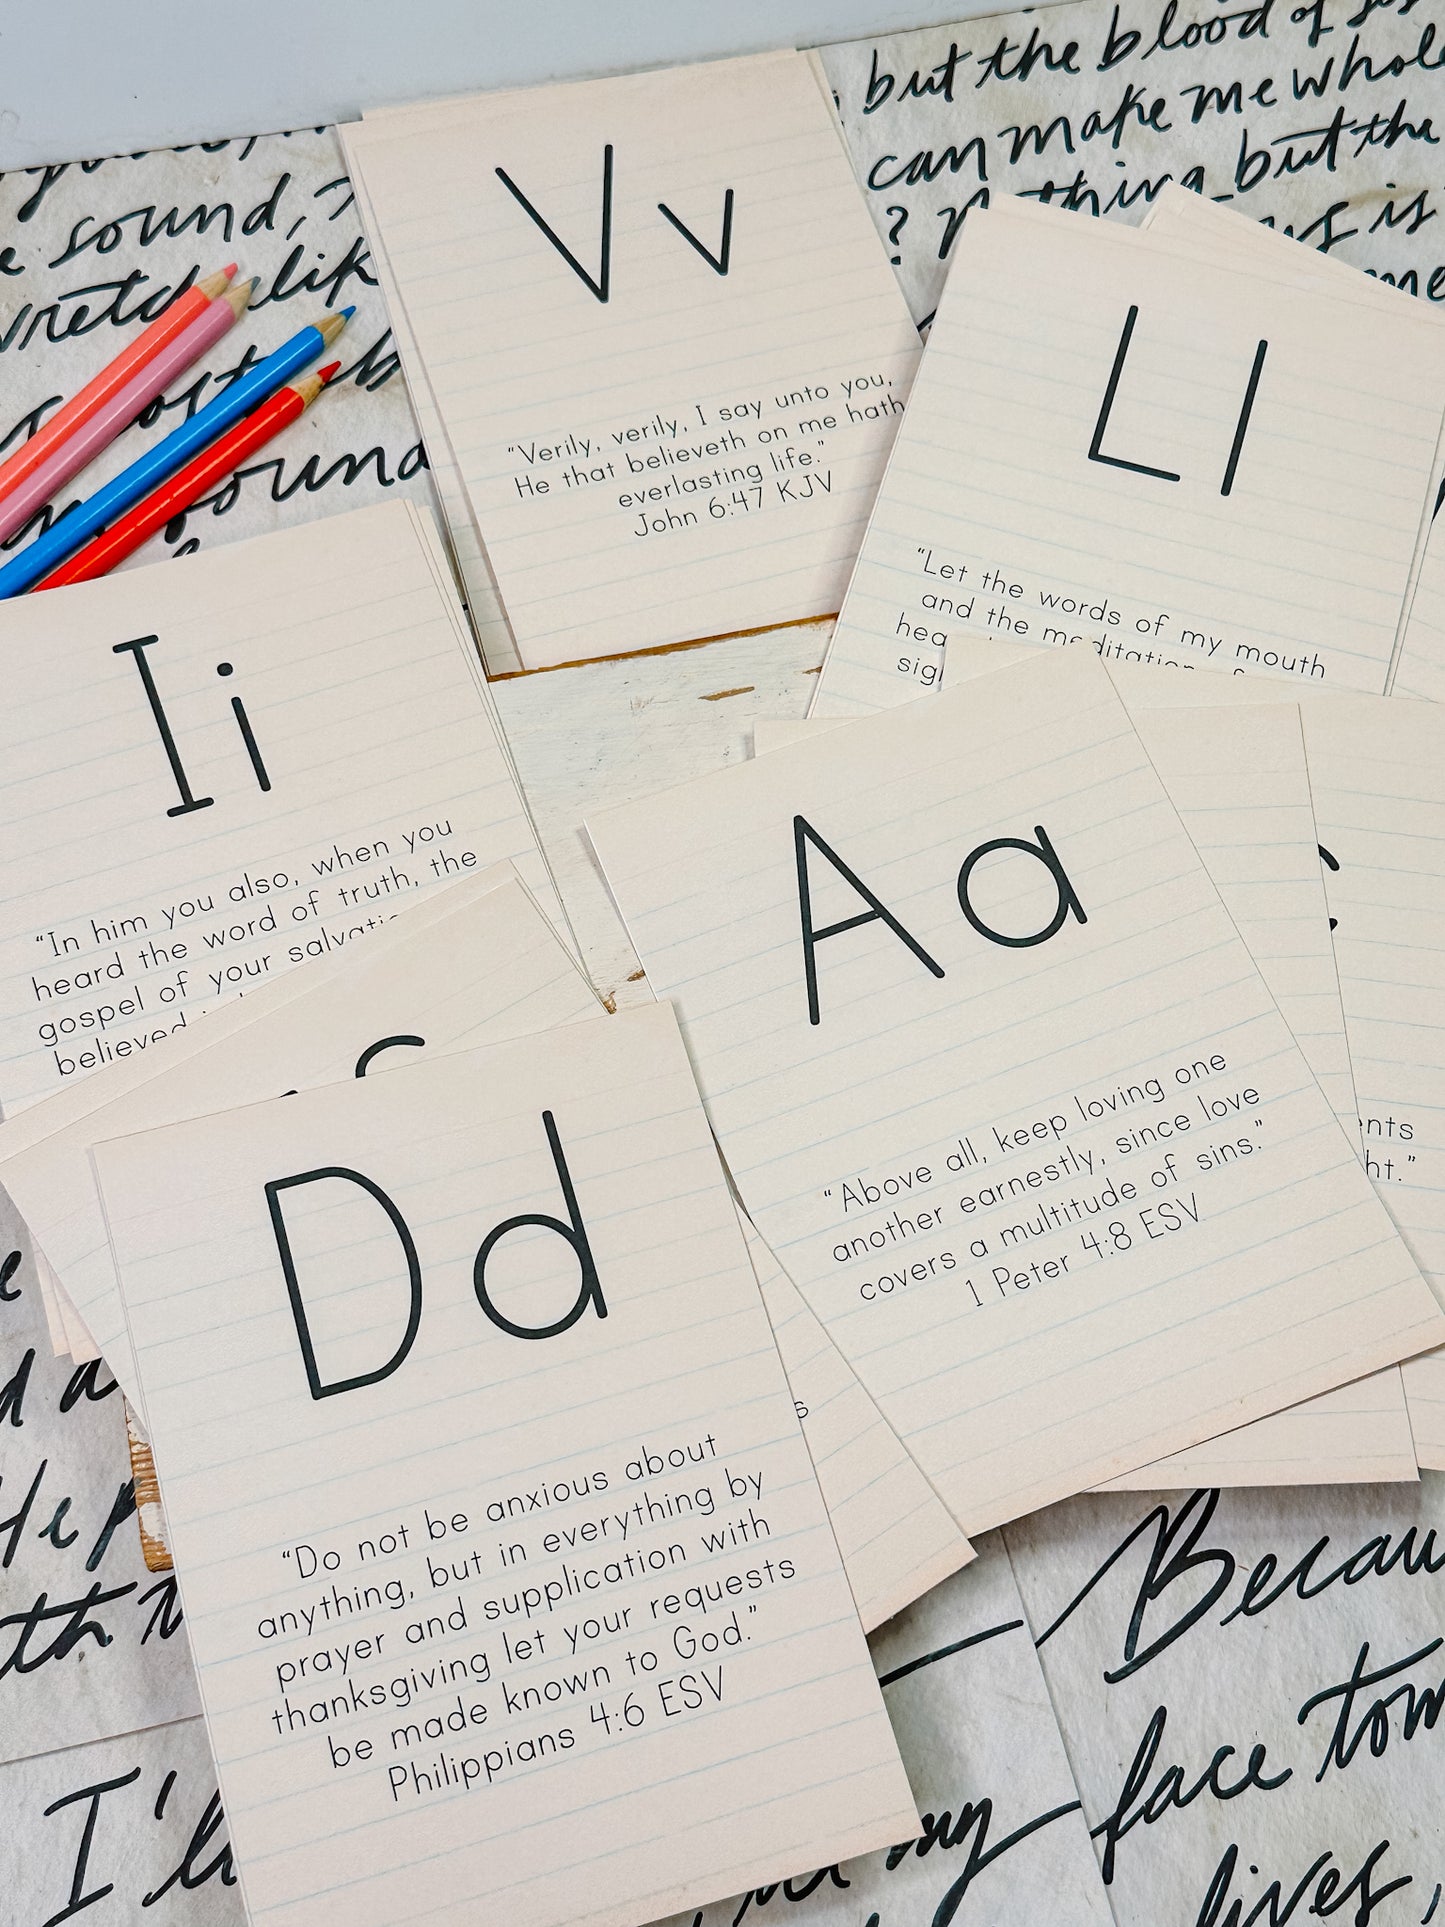 but the blood of
can make me whole
? Nothing but the
is
me
sound,
wretch like
found
Vv
"Verily, verily, I say unto you,
He that believeth on me hath
everlasting life."
John 6:47 KJV
Ll
"Let the words of my mouth
and the meditation
Ii
"In him you also, when you
heard the word of truth, the
gospel of your salvation
believed
Aa
"Above all, keep loving one
another earnestly, since love
covers a multitude of sins."
1 Peter 4:8 ESV
Dd
"Do not be anxious about
anything, but in everything by
prayer and supplication with
thanksgiving let your requests
be made known to God."
Philippians 4:6 ESV
I'll
my
face
lives,